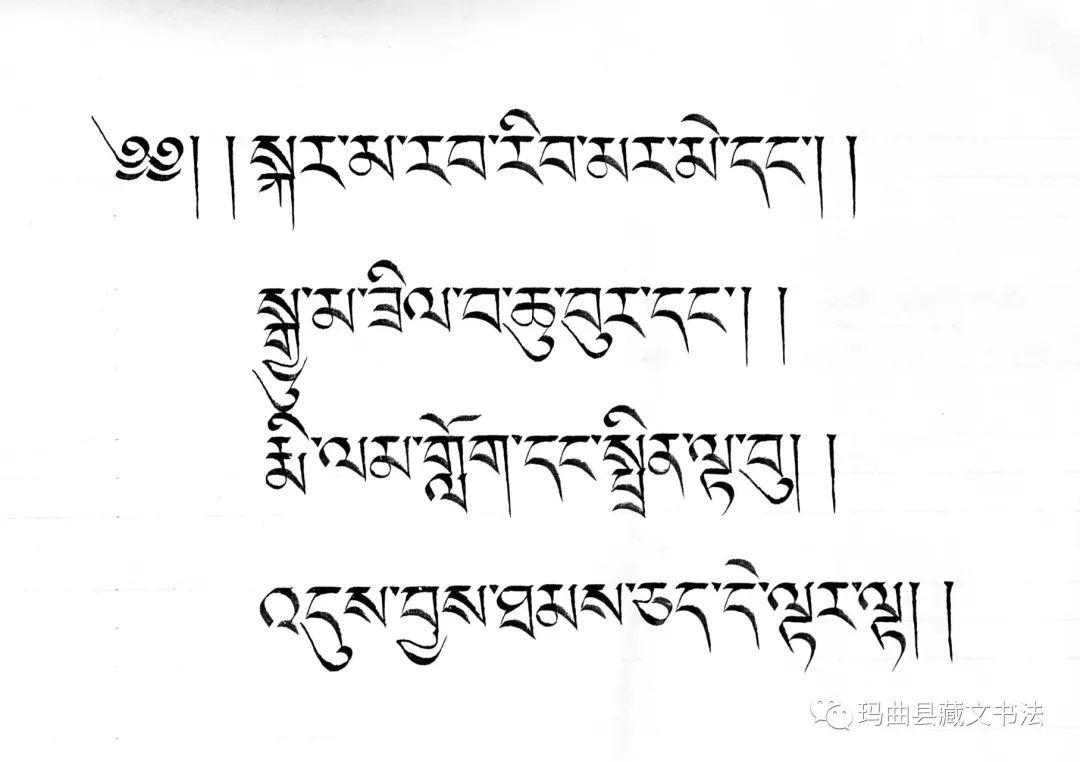 ༄༅། །སྐར་མ་རབ་རིབ་མར་མེ་དང་། །
སྒྱུ་མ་ཟིལ་བ་ཆུ་བུར་དང་། །
རྨི་ལམ་གློག་དང་སྤྲིན་ལྟ་བུ། །
འདུས་བྱས་ཐམས་ཅད་དེ་ལྟར་ལྟ། །
玛曲县藏文书法